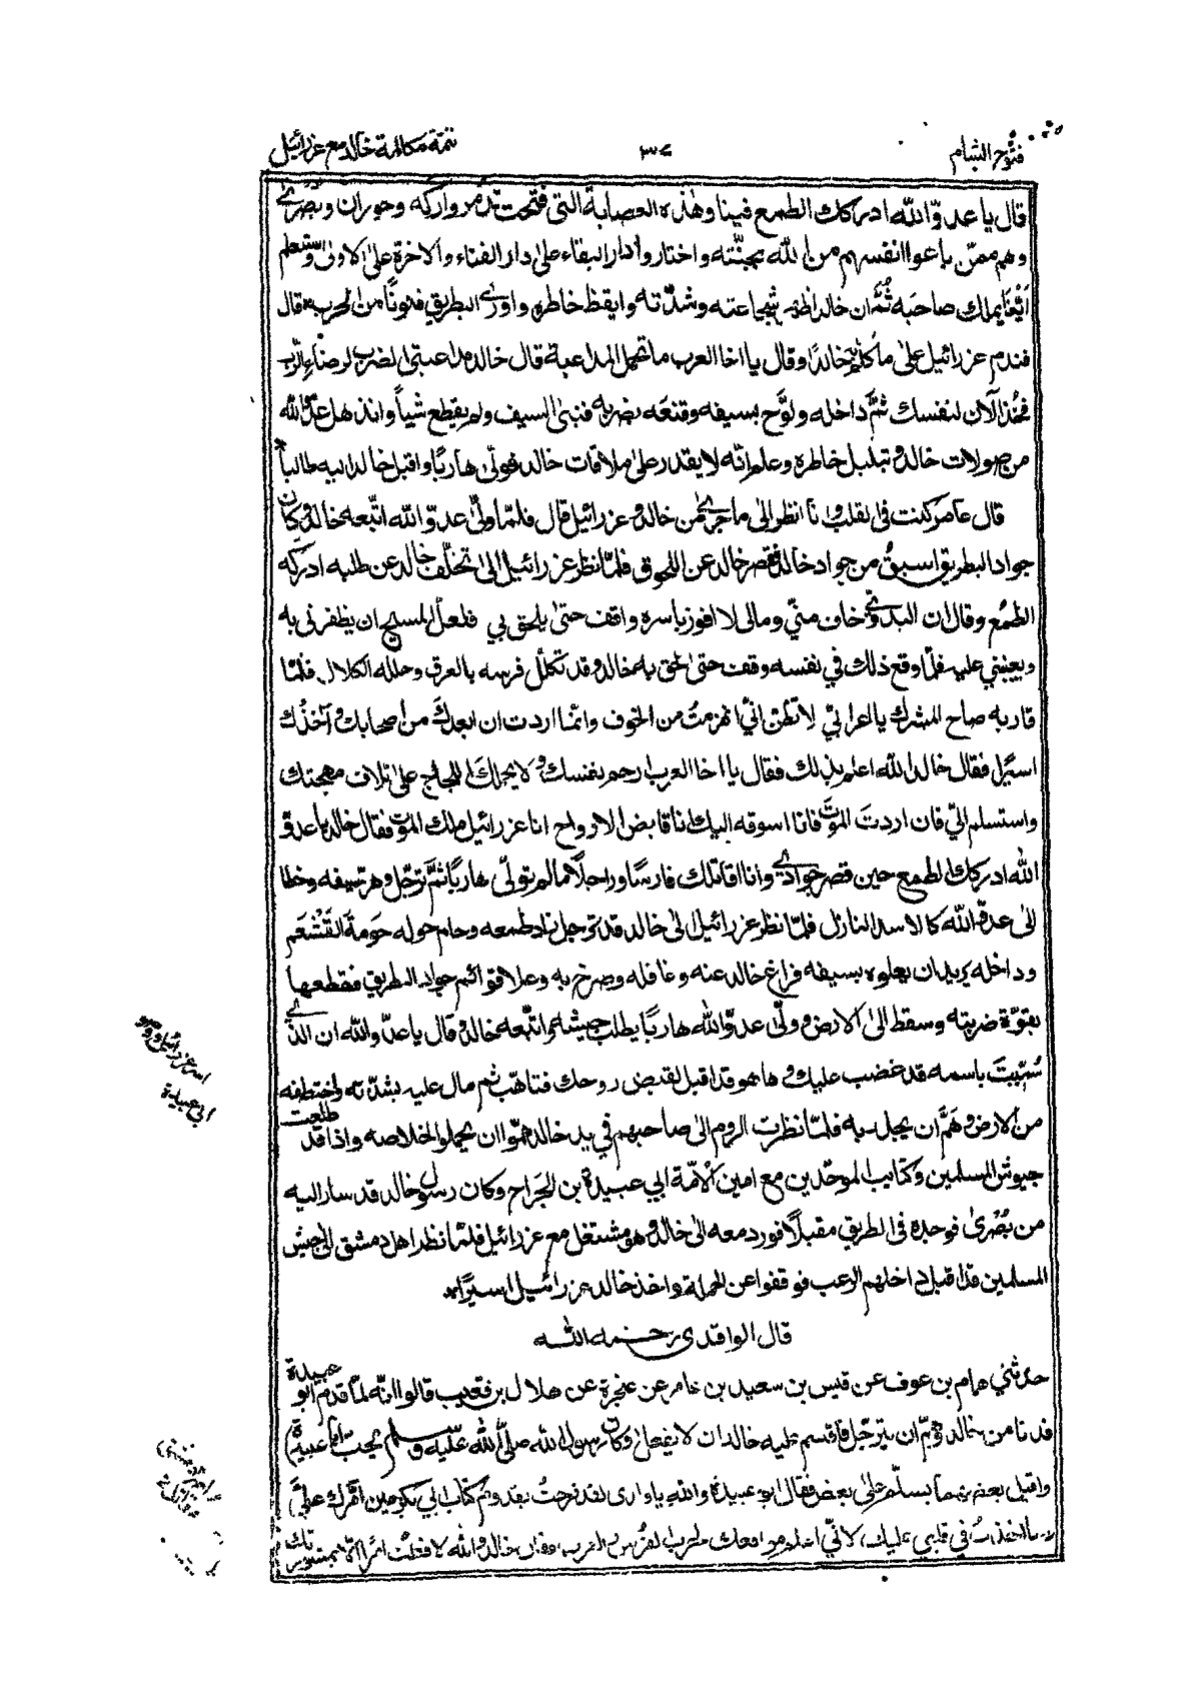 فتوح الشام
٣٤
تتمة مكالمة خالد مع عزرائيل
قال يا عدوّ الله ادركك الطمع فينا وهذه العصابة التى فتحت تدمر واركه وحوران وبصرى
وهم ممّن باعوا انفسهم من الله بجنّته واختاروا دار البقاء على دار الفناء والاخرة على الاولى وستعلم
ايّنا يملك صاحبه ثُمَّ ان خالد اظهر شجاعته وشدّته وايقظ خاطره واورى البطريق فنونًا من الحرب قال
فندم عزرائيل على ما كلّم به خالدًا وقال يا اخا العرب ما تحمل المداعبة قال خالد مداعبتى الضرب لرضاء الرّب
فخُذ الآن لنفسك ثمَّ داخله ولوَّح بسيفه وقنعه بضربه فنبى السيف ولم يقطع شيأً واندهل عدوّ الله
من صولات خالد وتبلبل خاطره وعلم انّه لا يقدر على ملاقات خالد فولّى هاربًا واقبل خالد اليه طالباً
قال عامر كنت فى القلب وانا انظر الى ما جرى من خالد وعزرائيل قال فلمّا ولّى عدوّ الله اتّبعه خالد وكان
جواد البطريق اسبقُ من جواد خالد فقصر خالد عن اللحوق فلمّا نظر عزرائيل الى تخلّف خالد عن طلبه ادركه
الطمُع وقال ان البدوى خاف منّي ومالى لا افوز باسره واقف حتى يلحق بي فلعلّ المسيح ان يظفرنى به
ويعينني عليه فلمّا وقع ذلك في نفسه وقف حتى لحق به خالد وقد تكلّل فرسه بالعرق وحلله الكلال فلمّا
قاربه صاح المشرك يا اعرابيّ لا تظن انّي انهزمتُ من الخوف وانّما اردت ان ابعدكَ من اصحابك وآخذُك
اسيرًا فقال خالد الله اعلم بذلك فقال يا اخا العرب ارحم نفسك ولا يحملكَ اللجاج على تلاف مهجتك
واستسلم اليّ فان اردتَ الموتَ فانا اسوقه اليك انا قابض الارواح انا عزرائيل ملك الموت فقال خالد يا عدوّ
الله ادركك الطمع حين قصر جوادى وانا اقاتلك فارسًا وراجلًا ما لم تولّى هاربًا ثمَّ ترجّل وهز سيفه وخطا
الى عدوّ الله كالاسد النازل فلمّا نظر عزرائيل الى خالد قد ترجل زاد طمعه وحام حوله حَومةَ القَشْعَم
وداخله يريد ان يعلوه بسيفه فراغ خالد عنه وغافله وصرخ به وعلا قوائم جواد البطريق فقطعها
بقوّة ضربته وسقط الى الارض وولّى عدوّ الله هاربًا يطلب جيشه ثم اتّبعه خالد وقال يا عدوّ الله ان الذى
سُمّيتَ باسمه قد غضب عليك وها هو قد اقبل لقبض روحك فتاهّب ثم مال عليه بشدّته واختطفه
من الارض وهَمَّ ان يجلد به فلمّا نظرت الروم الى صاحبهم في يد خالد همّوا ان يحملوا لخلاصه واذا قد طلعت
جيوش المسلمين وكتايب الموحّدين مع امين الاُمّة ابي عبيدة بن الجراح وكان رسول خالد قد سار اليه
من بُصرى فوجده فى الطريق مقبلًا فورد معه الى خالد وهو مشتغل مع عزرائيل فلمّا نظر اهل دمشق الى جيش
المسلمين قد اقبل داخلهم الرعب فوقفوا عن الحملة واخذ خالد عزرائيل اسيرًا
قال الواقدى رحمه الله
حدثني همام بن عوف عن قيس بن سعيد بن عامر عن عنجرة عن هلال بن قعيب قالوا انّه لمّا قدم ابو عبيدة
فدنا من خالد وهمّ ان يترجّل فاقسم عليه خالد ان لا يفعل وكان رسول الله صلّى الله عليه وسلم يحبّ ابا عبيدة
واقبل بعضهما يسلّم على بعض فقال ابو عبيدة والله يا ... لقد فرحتُ بقدوم كتاب ابي بكر حين امّرك علىَّ
وما اخذتُ في قلبي عليك لانّي اعلم مواقعك ... فقال خالد والله لا فعلتُ امرًا الّا بمشورتك
اسر عزرائيل وورود
ابى عبيدة